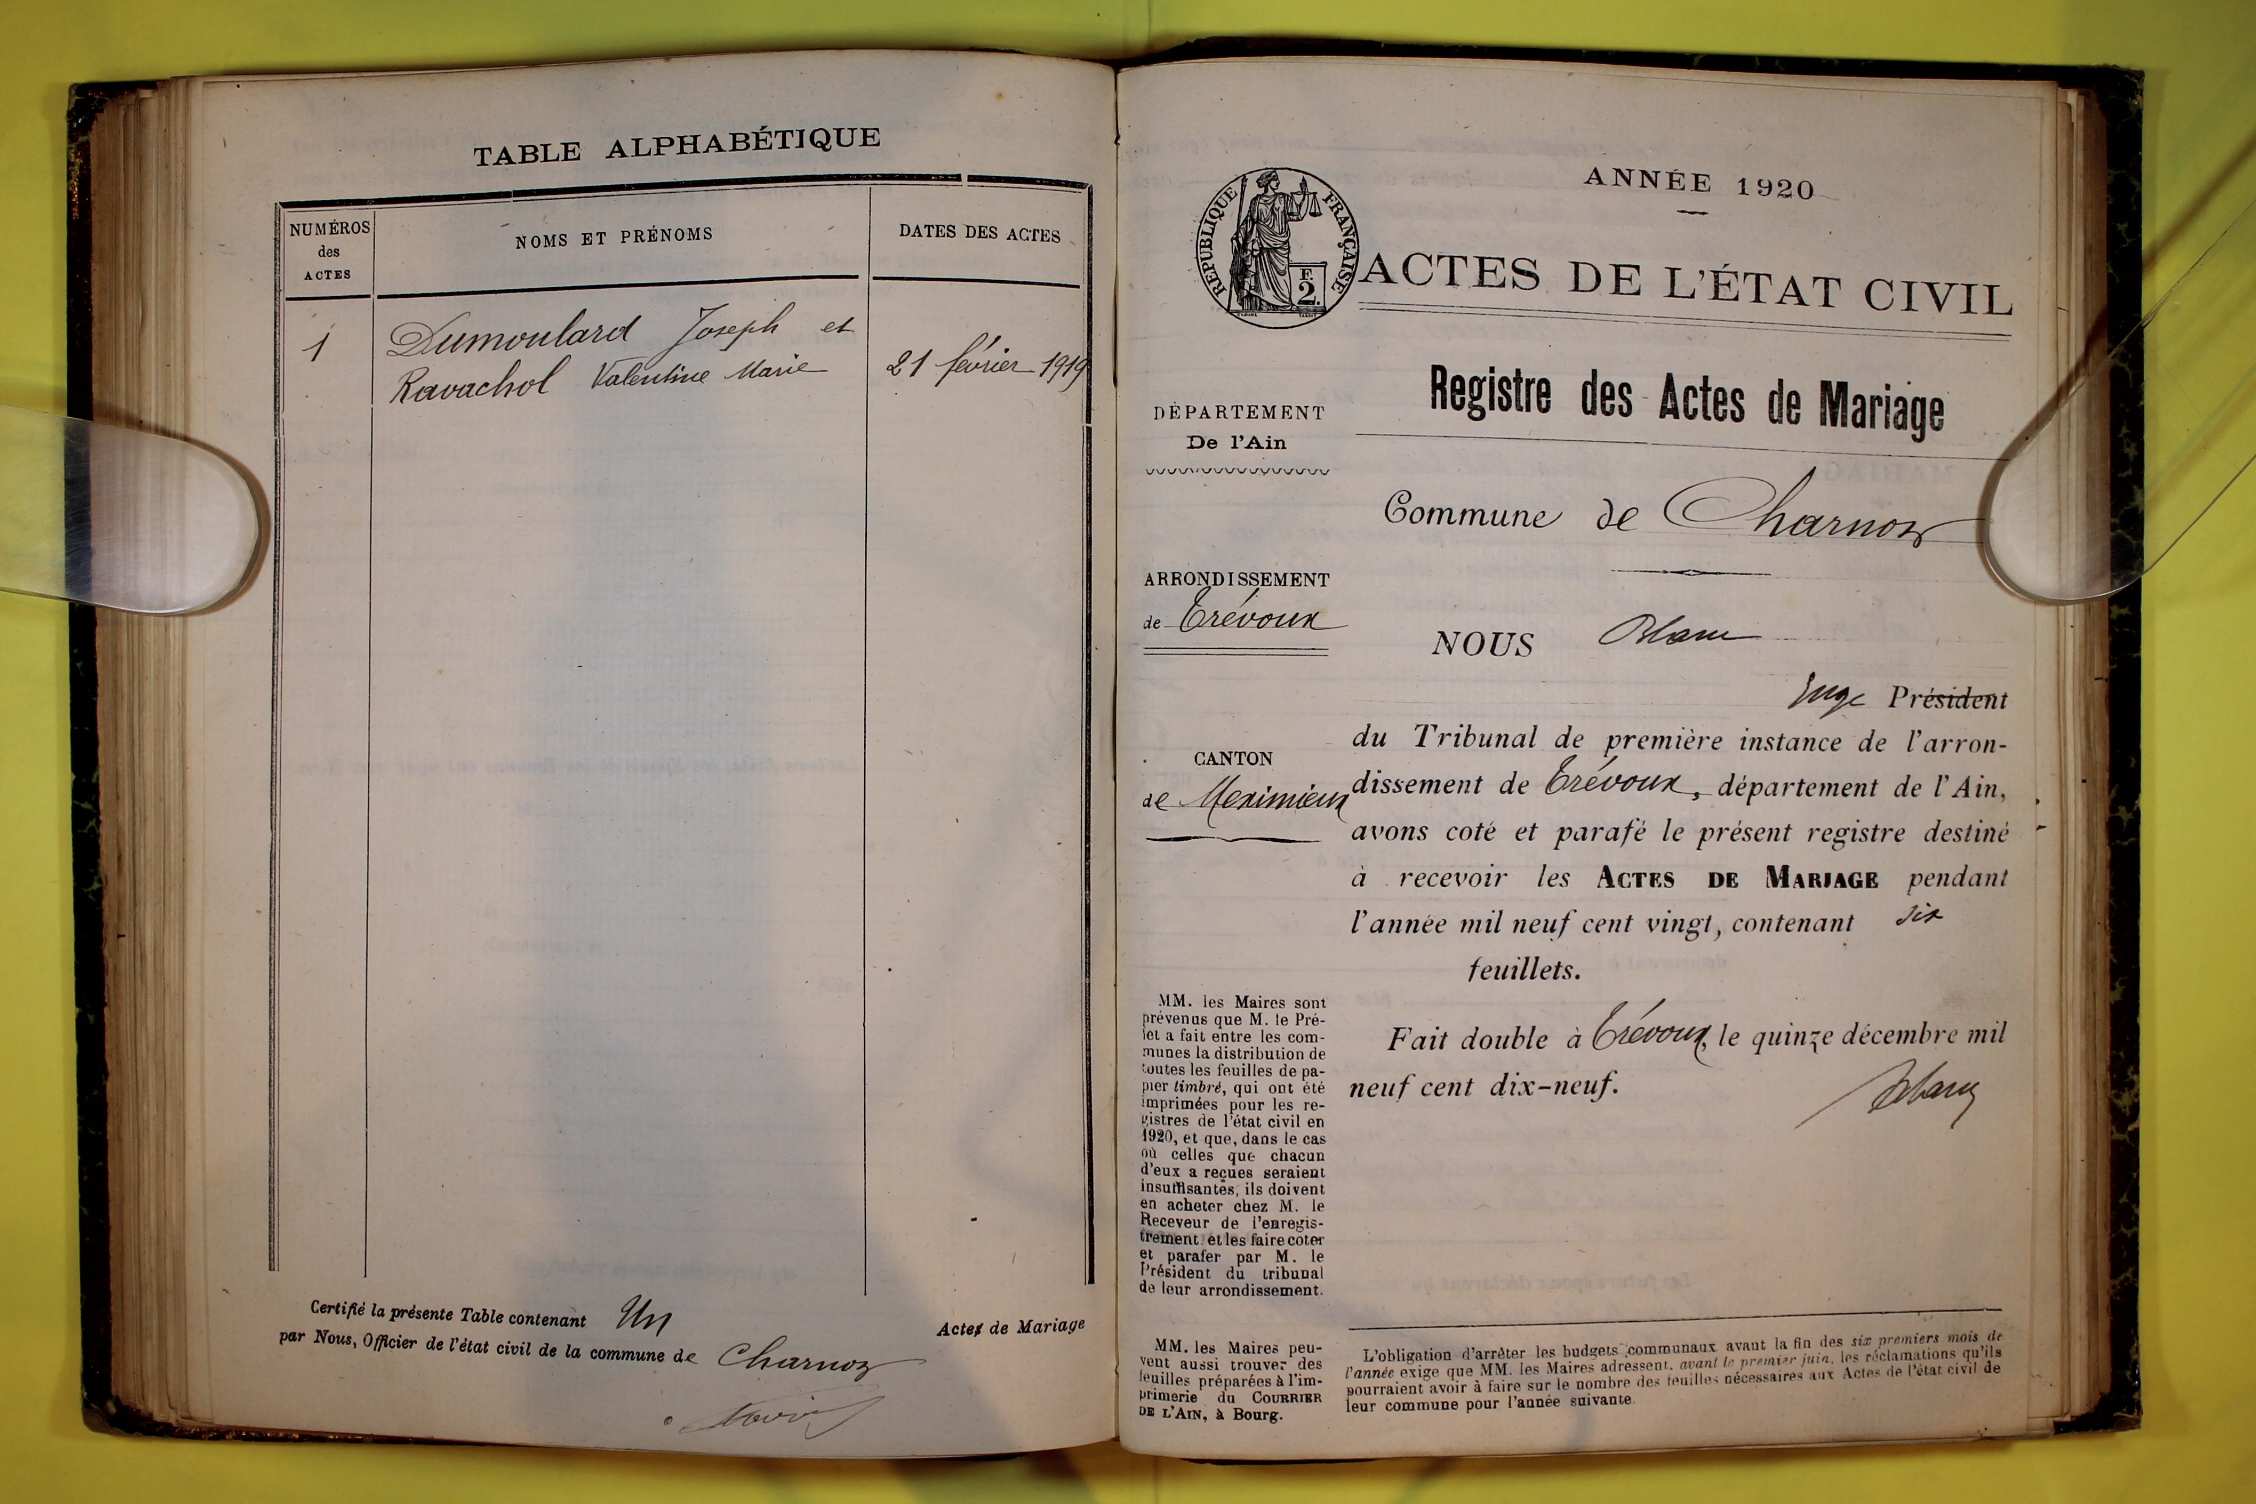 TABLE ALPHABÉTIQUE
NUMÉROS
des
ACTES
NOMS ET PRÉNOMS
DATES DES ACTES
1
Dumoulard Joseph et
Ravachol Valentine Marie
21 février 1919
Certifié la présente Table contenant Un Actes de Mariage
par Nous, Officier de l'état civil de la commune de Charnoz
RÉPUBLIQUE FRANÇAISE
F.
2.
ANNÉE 1920
ACTES DE L'ÉTAT CIVIL
Registre des Actes de Mariage
DÉPARTEMENT
De l'Ain
Commune de Charnoz
ARRONDISSEMENT
de Trévoux
NOUS Blanc
Juge Président
CANTON
de Meximieux
du Tribunal de première instance de l'arron-
dissement de Trévoux, département de l'Ain,
avons coté et parafé le présent registre destiné
à recevoir les ACTES DE MARIAGE pendant
l'année mil neuf cent vingt, contenant six
feuillets.
Fait double à Trévoux, le quinze décembre mil
neuf cent dix-neuf.
Blanc
MM. les Maires sont
prévenus que M. le Pré-
fet a fait entre les com-
munes la distribution de
toutes les feuilles de pa-
pier timbré, qui ont été
imprimées pour les re-
gistres de l'état civil en
1920, et que, dans le cas
où celles que chacun
d'eux a reçues seraient
insuffisantes, ils doivent
en acheter chez M. le
Receveur de l'enregis-
trement et les faire coter
et parafer par M. le
Président du tribunal
de leur arrondissement.
MM. les Maires peu-
vent aussi trouver des
feuilles préparées à l'im-
primerie du COURRIER
DE L'AIN, à Bourg.
L'obligation d'arrêter les budgets communaux avant la fin des six premiers mois de
l'année exige que MM. les Maires adressent, avant le premier juin, les réclamations qu'ils
pourraient avoir à faire sur le nombre des feuilles nécessaires aux Actes de l'état civil de
leur commune pour l'année suivante.